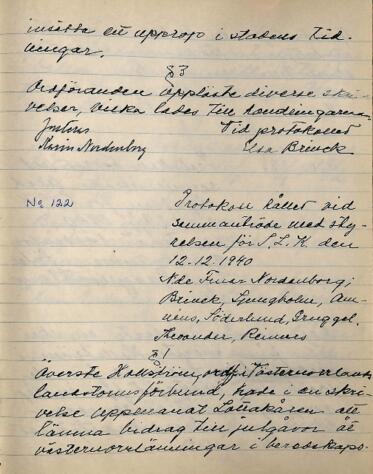 insätta ett upprop i stadens tid-
ningar.
§3
Ordföranden uppläste diverse skri-
velser, vilka lades till handlingarna.
Justeras Vid protokollet
Karin Nordenborg Elsa Brinck
No 122
Protokoll hållet vid
sammanträde med sty-
relsen för S.L.K. den
12-12-1940
Nde Fruar Nordenborg,
Brinck, Ljungholm,
Söderlund,
§1
Överste ordf i Västernorrlands
landstormsförbund, hade i en skri-
velse uppmanat Lottakåren att
lämna bidrag till julgåvor åt
västernorrlänningar i beredskaps-